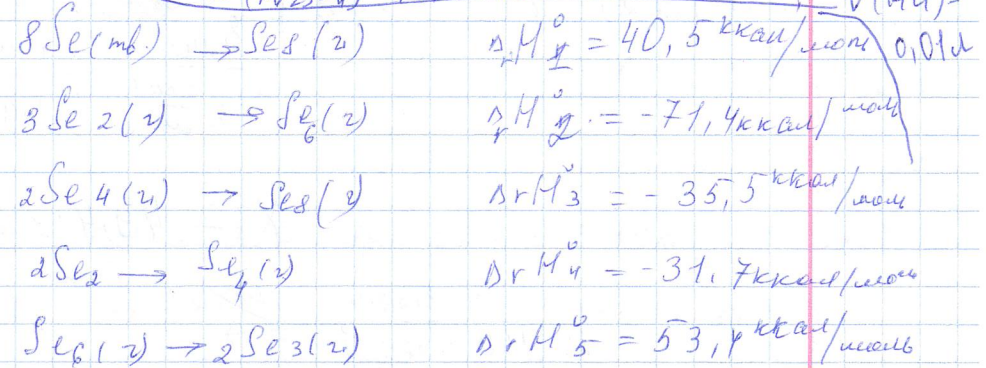 8Se(тв.) → Se8(г) ΔrH°1 = 40,5 ккал/моль 0,01л
3Se2(г) → Se6(г) ΔrH°2 = -71,4 ккал/моль
2Se4(г) → Se8(г) ΔrH°3 = -35,5 ккал/моль
2Se2 → Se4(г) ΔrH°4 = -31,7 ккал/моль
Se6(г) → 2Se3(г) ΔrH°5 = 53,4 ккал/моль